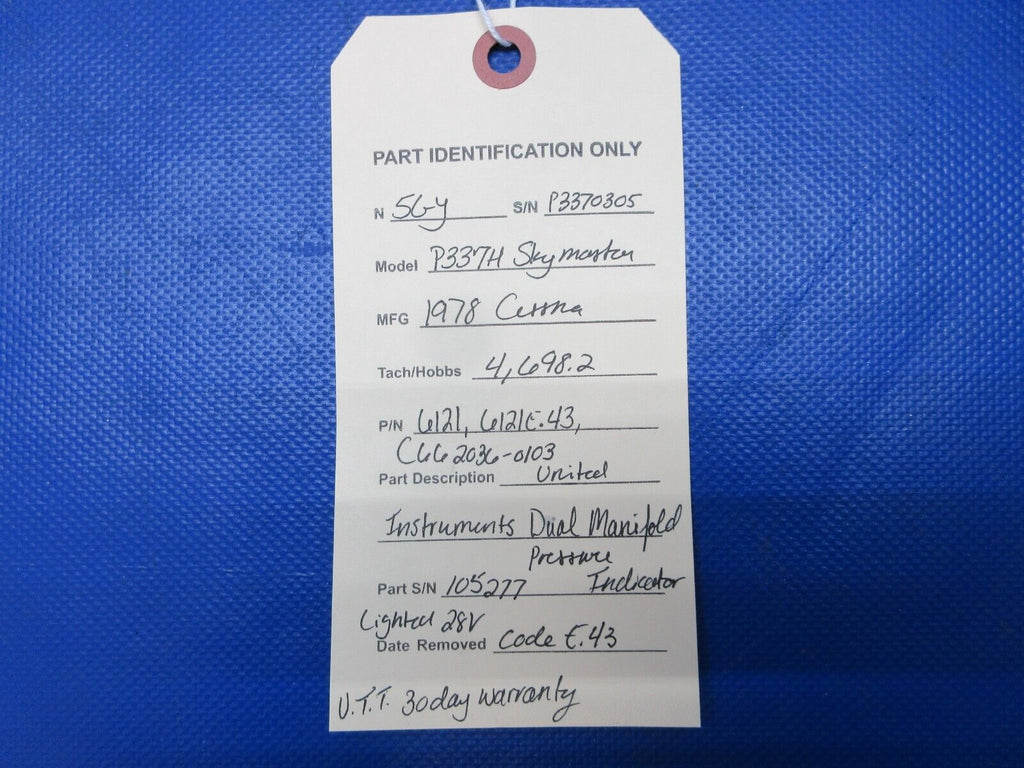 PART IDENTIFICATION ONLY
N 5GY S/N P3370305
Model P337H Skymaster
MFG 1978 Cessna
Tach/Hobbs 4,698.2
P/N 6121, 6121E.43,
C662036-0103
Part Description United
Instruments Dual Manifold
Pressure
Part S/N 105277 Indicator
Lighted 28V
Date Removed Code E.43
U.T.T. 30 day warranty